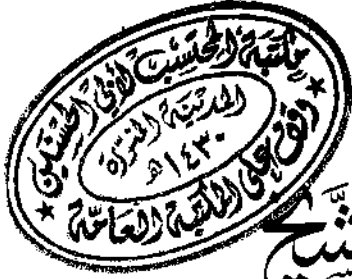 مكتبة المحتسب لأبي الحسنين
المدينة المنورة
١٤٣٠هـ
وقف على المكتبة العامة